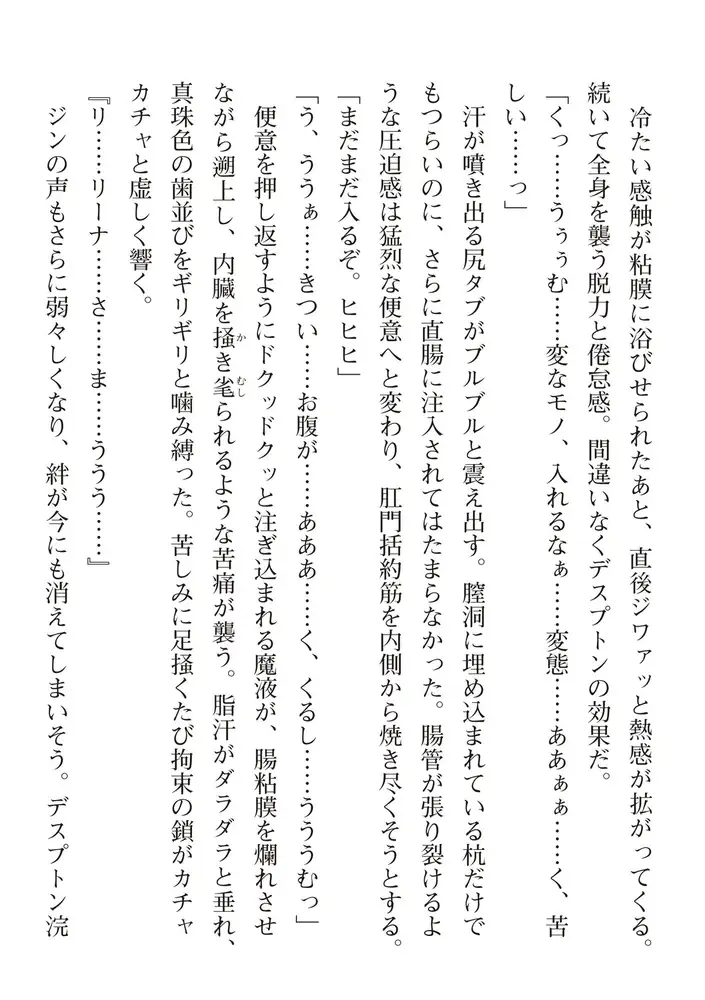 冷たい感触が粘膜に浴びせられたあと、直後ジワァッと熱感が拡がってくる。
続いて全身を襲う脱力と倦怠感。間違いなくデスプトンの効果だ。
「くっ……うぅぅむ……変なモノ、入れるなぁ……変態……ああぁぁ……く、苦
しい……っ」
汗が噴き出る尻タブがブルブルと震え出す。膣洞に埋め込まれている杭だけで
もつらいのに、さらに直腸に注入されてはたまらなかった。腸管が張り裂けるよ
うな圧迫感は猛烈な便意へと変わり、肛門括約筋を内側から焼き尽くそうとする。
「まだまだ入るぞ。ヒヒヒ」
「う、ううぁ……きつい……お腹が……あああ……く、くるし……うううむっ」
便意を押し返すようにドクッドクッと注ぎ込まれる魔液が、腸粘膜を爛れさせ
ながら遡上し、内臓を掻かき毟むしられるような苦痛が襲う。脂汗がダラダラと垂れ、
真珠色の歯並びをギリギリと噛み縛った。苦しみに足掻くたび拘束の鎖がカチャ
カチャと虚しく響く。
『リ……リーナ……さ……ま……ううう……』
ジンの声もさらに弱々しくなり、絆が今にも消えてしまいそう。デスプトン浣